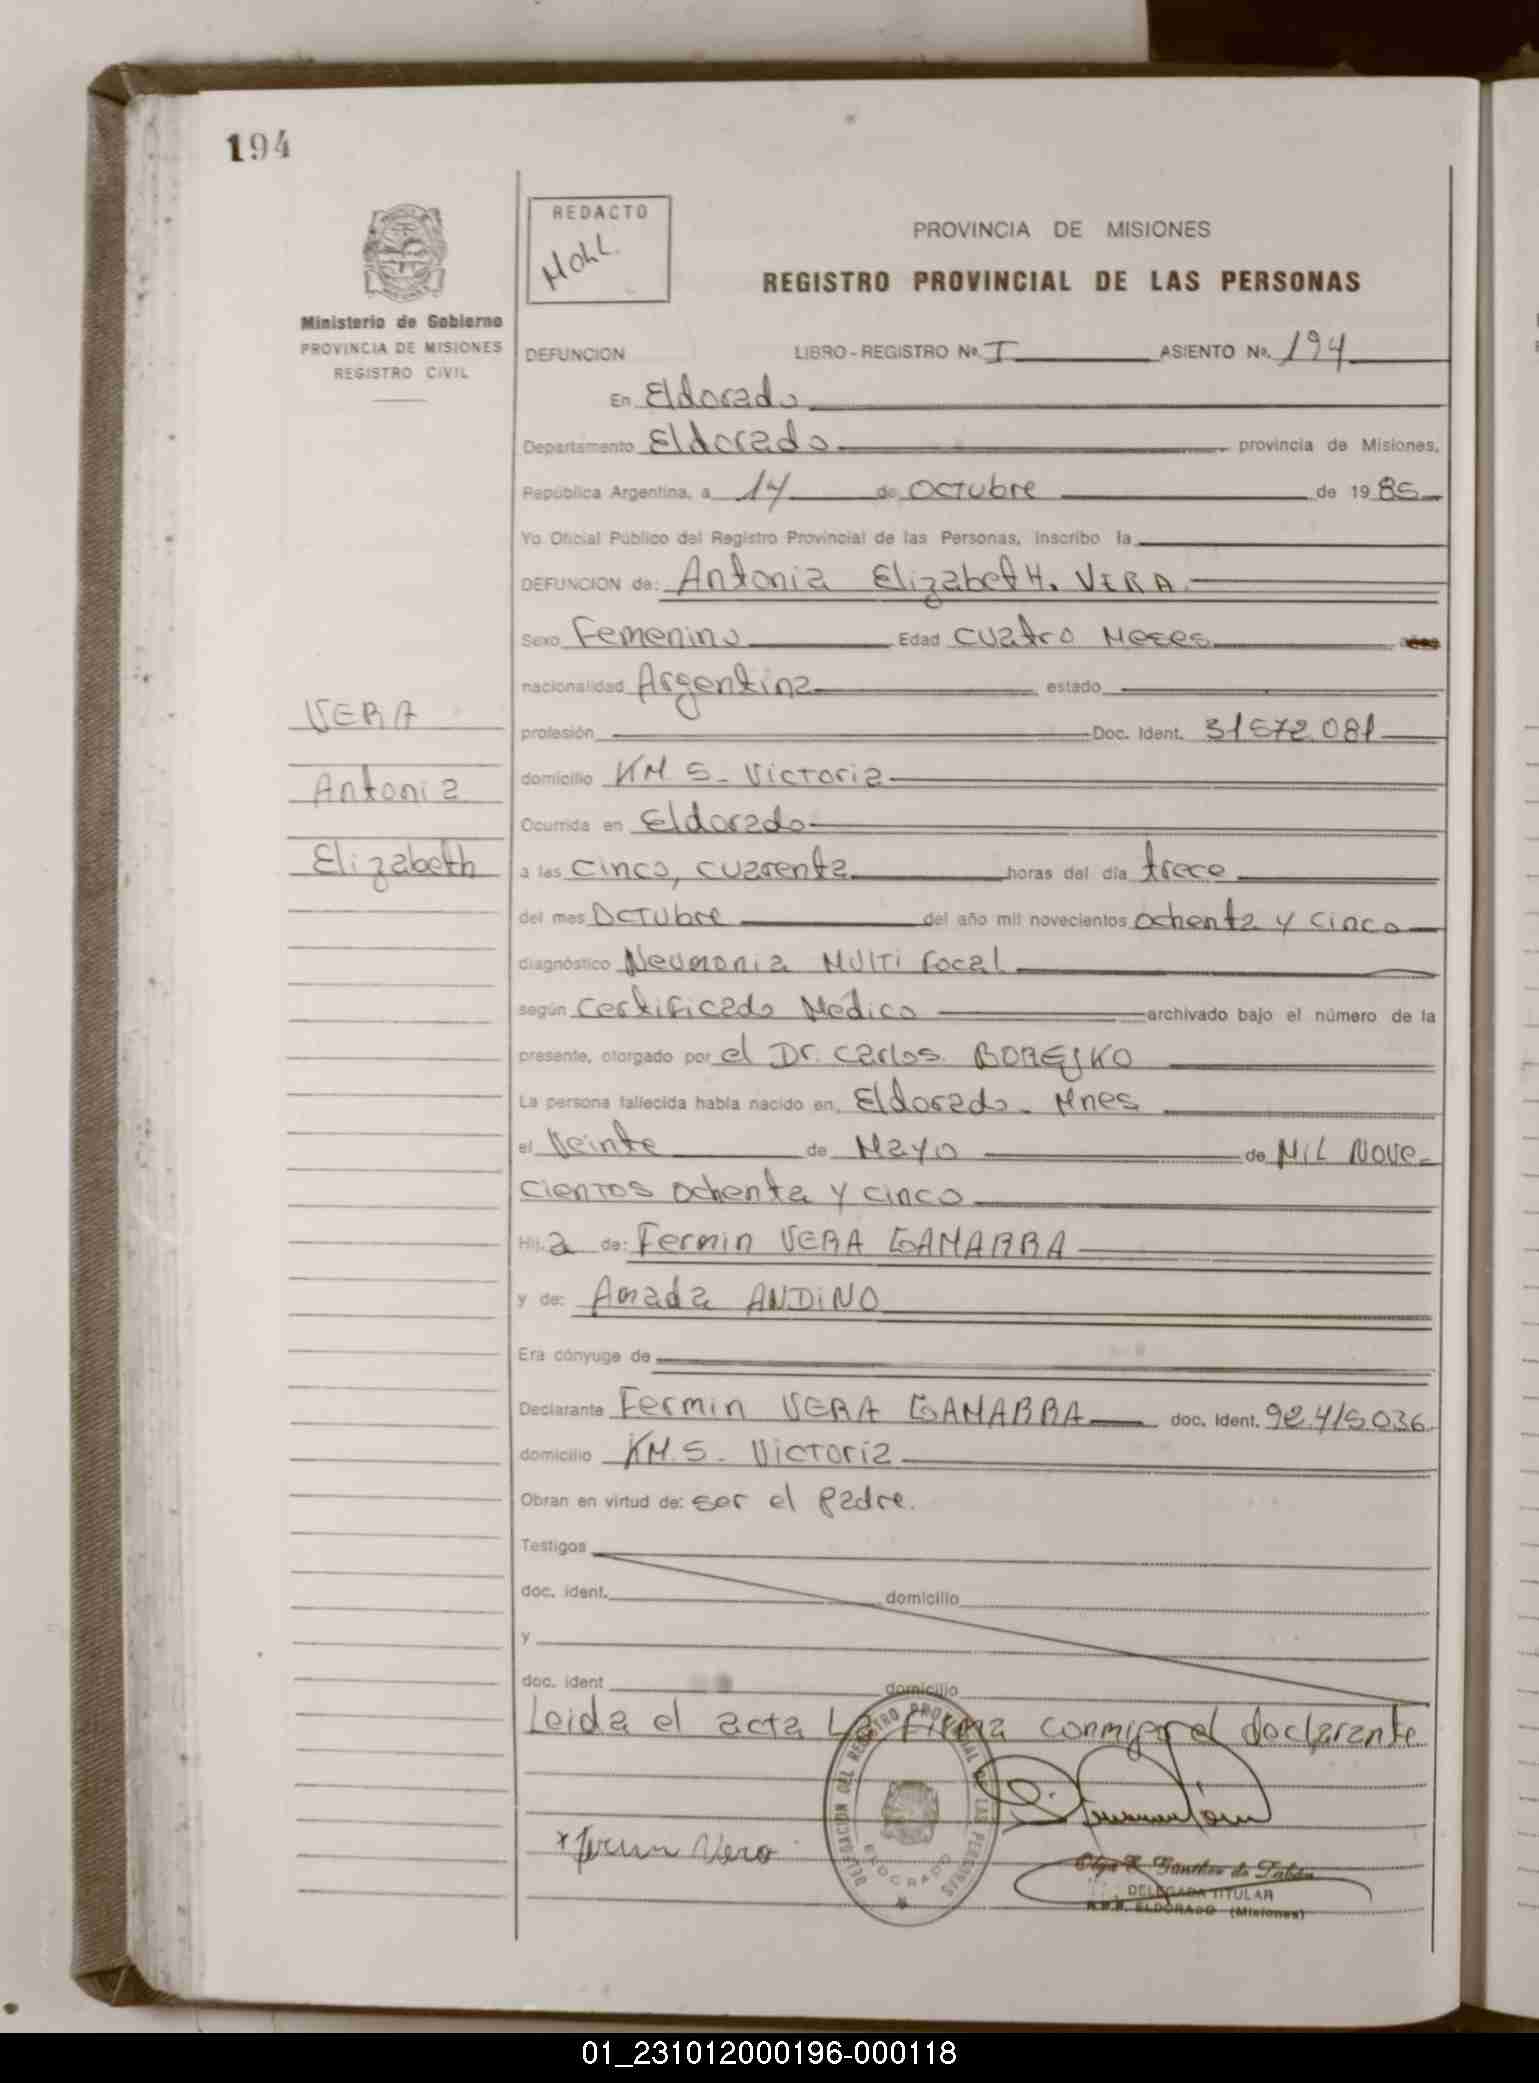 194
REDACTO
Mohl.
PROVINCIA DE MISIONES
REGISTRO PROVINCIAL DE LAS PERSONAS
Ministerio de Gobierno
PROVINCIA DE MISIONES
REGISTRO CIVIL
DEFUNCION LIBRO-REGISTRO Nº. I ASIENTO Nº. 194
En Eldorado
Departamento Eldorado provincia de Misiones,
República Argentina, a 14 de Octubre de 1985
Yo Oficial Público del Registro Provincial de las Personas, inscribo la
DEFUNCION de: Antonia Elizabeth. VERA
Sexo Femenino Edad cuatro Meses
nacionalidad Argentina estado
VERA
profesión Doc. Ident. 31572.081
domicilio KM 5_ Victoria
Antonia
Ocurrida en Eldorado
Elizabeth
a las cinco, cuarenta horas del día trece
del mes Octubre del año mil novecientos ochenta y cinco
diagnóstico Neumonia Multi focal
según certificado Médico archivado bajo el número de la
presente, otorgado por el Dr. Carlos. BOREJKO
La persona fallecida había nacido en, Eldorado_ Mnes
el Veinte de Mayo de Mil Nove-
cientos ochenta y cinco
Hij a de: Fermin VERA GAMARRA
y de: Amada ANDINO
Era cónyuge de
Declarante Fermin VERA GAMARRA doc. Ident. 92.415.036
domicilio KM. 5_ Victoria
Obran en virtud de: ser el padre.
Testigos
doc. ident. domicilio
y
doc. ident domicilio
Leida el acta La firma conmigo el declarante
DELEGACION DEL REGISTRO PROVINCIAL DE LAS PERSONAS
ELDORADO
x Fermin Vera
DELEGADA TITULAR
R.P.P. ELDORADO (Misiones)
01_231012000196-000118